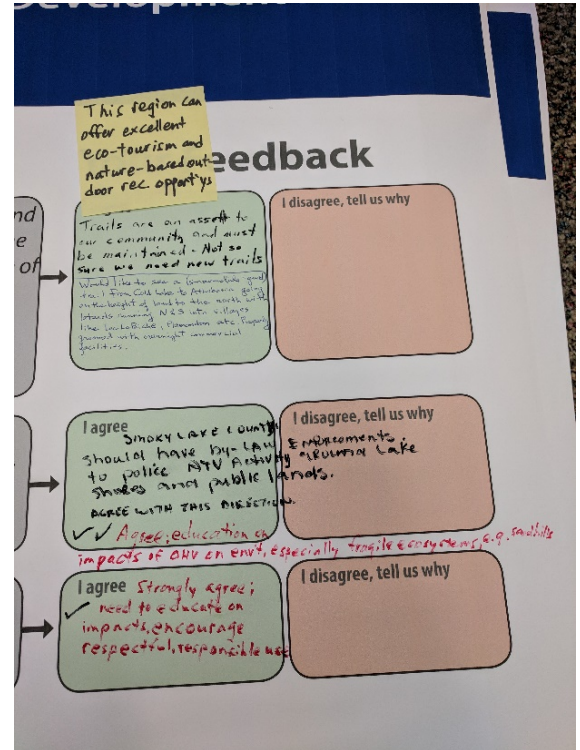 Development
This region can
offer excellent
eco-tourism and
nature-based out-
door rec. opport'ys
eedback
nd
e
of
Trails are an asset to
our community and must
be maintained - Not so
sure we need new trails
Would like to see a
trail from to Athabasca going
to the north with
running N&S into villages
like Lac La Biche, Plamondon etc.
with overnight commercial
facilities.
I disagree, tell us why
I agree
SMOKY LAKE COUNTY
Should have by-LAW ENFORCEMENTS
to police ATV Activity AROUND Lake
shores and public lands.
AGREE WITH THIS DIRECTION.
I disagree, tell us why
✓✓ Agree; education on
impacts of OHV on envt, especially fragile ecosystems, e.g. sandhills
I agree Strongly agree;
✓ need to educate on
impacts, encourage
respectful, responsible use
I disagree, tell us why